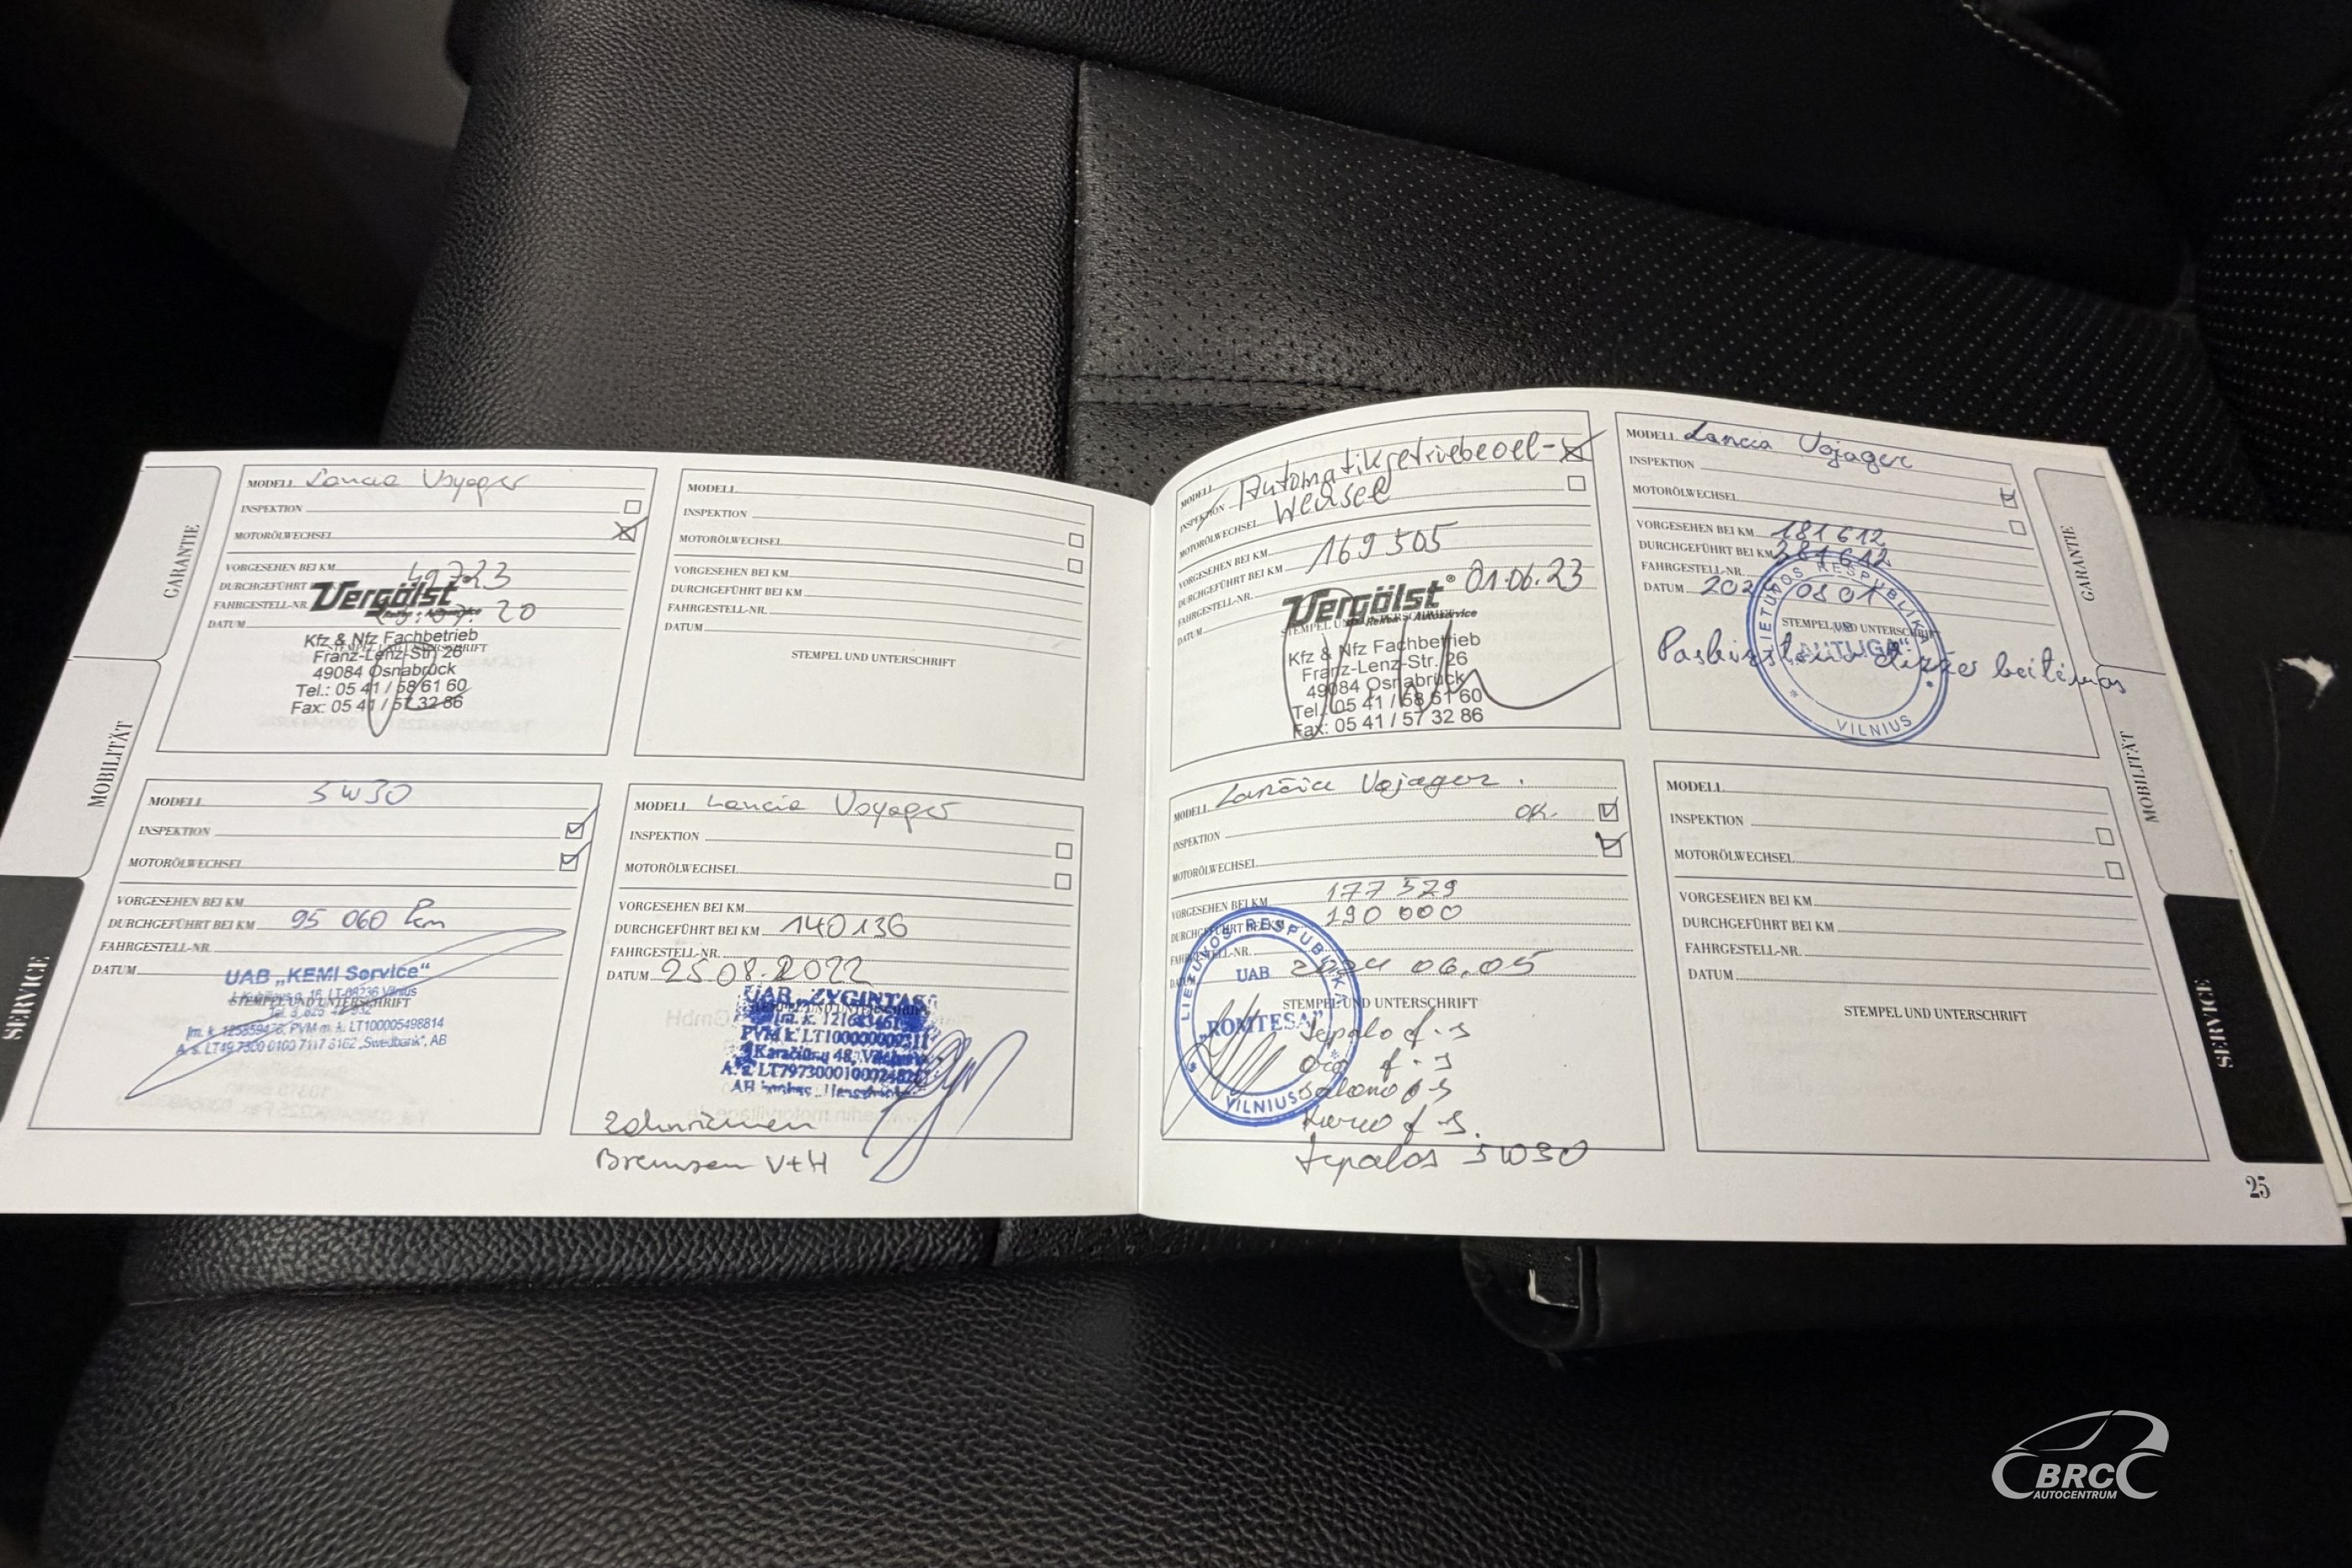 GARANTIE
MOBILITÄT
SERVICE
MODELL Lancia Voyager
INSPEKTION
MOTORÖLWECHSEL
VORGESEHEN BEI KM
DURCHGEFÜHRT
FAHRGESTELL-NR.
DATUM 20
Vergölst
Kfz & Nfz Fachbetrieb
STEMPEL UND UNTERSCHRIFT
Franz-Lenz-Str. 26
49084 Osnabrück
Tel.: 05 41 / 58 61 60
Fax: 05 41 / 57 32 86
MODELL
INSPEKTION
MOTORÖLWECHSEL
VORGESEHEN BEI KM
DURCHGEFÜHRT BEI KM
FAHRGESTELL-NR.
DATUM
STEMPEL UND UNTERSCHRIFT
MODELL 5W30
INSPEKTION
MOTORÖLWECHSEL
VORGESEHEN BEI KM
DURCHGEFÜHRT BEI KM 95 060 km
FAHRGESTELL-NR.
DATUM
UAB „KEMI Service“
STEMPEL UND UNTERSCHRIFT
PVM m. k. LT100005498814
„Swedbank“, AB
MODELL Lancia Voyager
INSPEKTION
MOTORÖLWECHSEL
VORGESEHEN BEI KM
DURCHGEFÜHRT BEI KM 140136
FAHRGESTELL-NR.
DATUM 25.08.2022
UAB „ZYGINTAS“
Zahnriemen
Bremsen V+H
MODELL Automatikgetriebeoel-
INSPEKTION Wechsel
MOTORÖLWECHSEL
VORGESEHEN BEI KM 169 505
DURCHGEFÜHRT BEI KM
FAHRGESTELL-NR. 01.06.23
DATUM
Vergölst®
Reifen + Autoservice
Kfz & Nfz Fachbetrieb
Franz-Lenz-Str. 26
49084 Osnabrück
Tel.: 05 41 / 58 61 60
Fax: 05 41 / 57 32 86
MODELL Lancia Vojager
INSPEKTION
MOTORÖLWECHSEL
VORGESEHEN BEI KM 181 612
DURCHGEFÜHRT BEI KM 181 612
FAHRGESTELL-NR.
DATUM
LIETUVOS RESPUBLIKA
STEMPEL UND UNTERSCHRIFT
„AUTUGA“
VILNIUS
MODELL Lančia Vojager.
INSPEKTION OK.
MOTORÖLWECHSEL
VORGESEHEN BEI KM 177 529
DURCHGEFÜHRT BEI KM 190 000
FAHRGESTELL-NR.
DATUM 2024 06.05
LIETUVOS RESPUBLIKA
UAB
STEMPEL UND UNTERSCHRIFT
„ROMTESA“
VILNIUS
Tepalo f-s
Oro f-s
Salono f-s
Kuro f-s.
Tepalas 5W30
MODELL
INSPEKTION
MOTORÖLWECHSEL
VORGESEHEN BEI KM
DURCHGEFÜHRT BEI KM
FAHRGESTELL-NR.
DATUM
STEMPEL UND UNTERSCHRIFT
GARANTIE
MOBILITÄT
SERVICE
25
BRC
AUTOCENTRUM